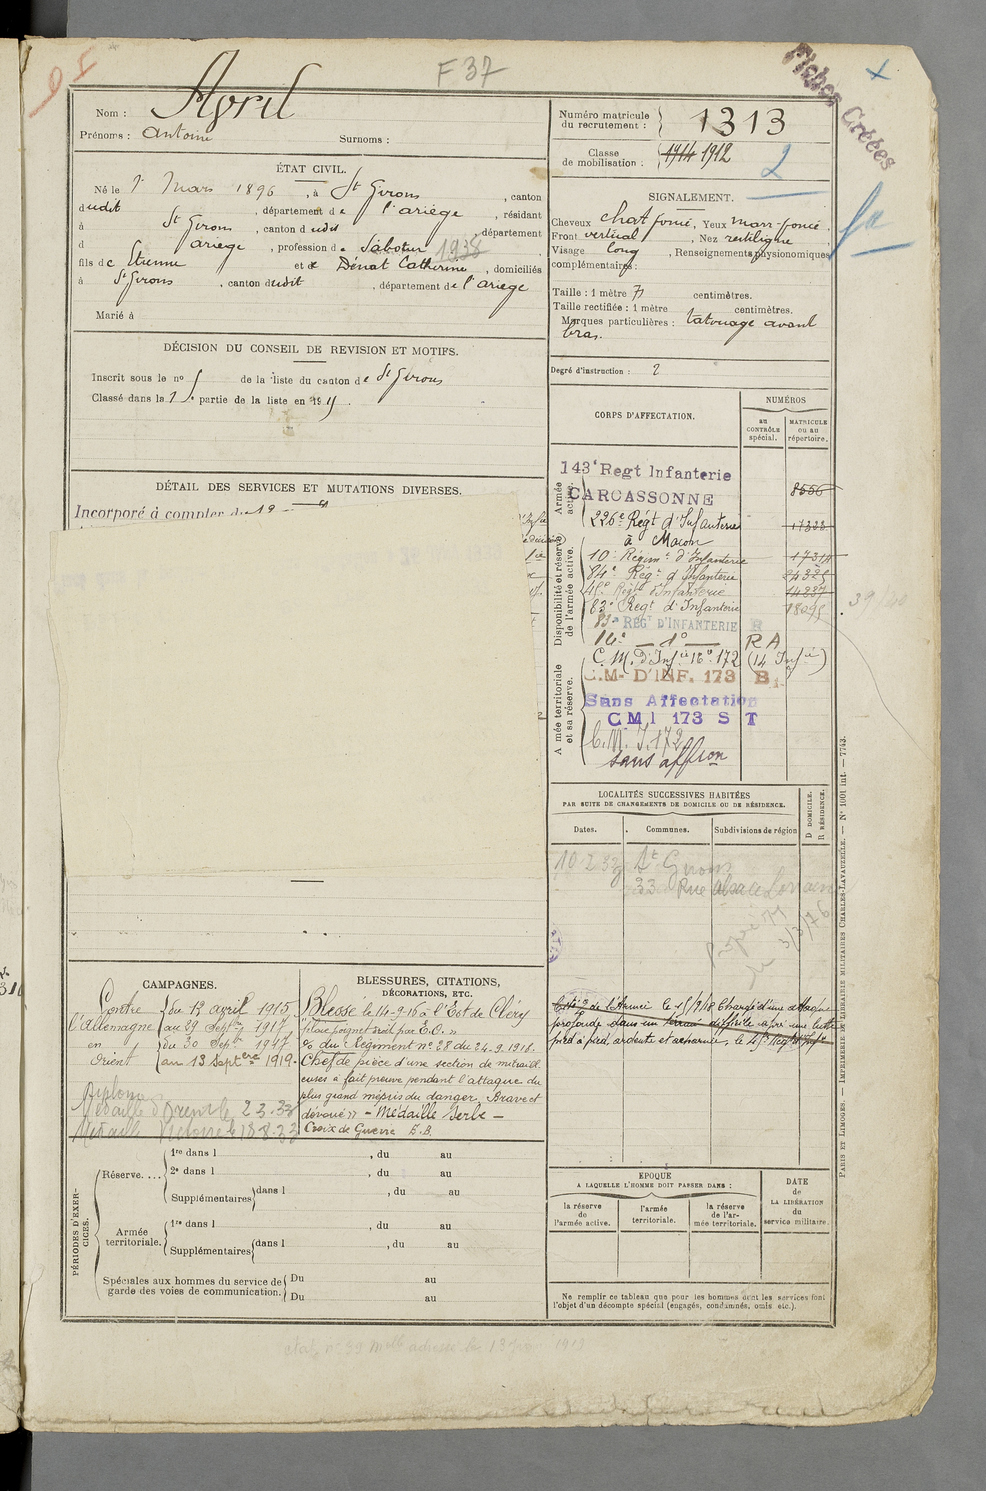 F 37
Fiches Créées
Nom : Avril
Prénoms : Antoine Surnoms :
Numéro matricule du recrutement : 1313
Classe de mobilisation : 1914 1912
2
ÉTAT CIVIL.
Né le 1er Mars 1896, à St Girons, canton
dudit, département de l'ariège, résidant
à St Girons, canton dudit, département
d ariege, profession de Sabotier 1938
fils de Etienne et de Dénat Catherine, domiciliés
à St Girons, canton dudit, département de l'ariege
Marié à
SIGNALEMENT.
Cheveux chat foncé, Yeux marr-foncé.
Front vertical, Nez rectiligne
Visage long, Renseignements physionomiques
complémentaires :
Taille : 1 mètre 71 centimètres.
Taille rectifiée : 1 mètre centimètres.
Marques particulières : tatouage avant
bras.
Degré d'instruction : 2
DÉCISION DU CONSEIL DE REVISION ET MOTIFS.
Inscrit sous le no 5 de la liste du canton de St Girons
Classé dans la 1 partie de la liste en 1915.
DÉTAIL DES SERVICES ET MUTATIONS DIVERSES.
Incorporé à compter du 12
CORPS D'AFFECTATION.
NUMÉROS
au CONTRÔLE spécial.
MATRICULE ou au répertoire.
Armée active.
Disponibilité et réserve de l'armée active.
A mée territoriale et sa réserve.
143e Regt Infanterie
CARCASSONNE 8556
226e Régt d'Infanterie
à Macon
10e Régimt d'Infanterie
84e Régt d'Infanterie
45e Régt d'Infanterie
83e Regt d'Infanterie 18095
83e REGt D'INFANTERIE R
14e — do — R A
C. M. d'Infie 16e 172 (14 Infie)
C.M- D'INF. 173 B
Sans Affectation
CMI 173 S T
C. M. I. 172
sans affon
39/40
LOCALITÉS SUCCESSIVES HABITÉES
PAR SUITE DE CHANGEMENTS DE DOMICILE OU DE RÉSIDENCE.
Dates. Communes. Subdivisions de région
D DOMICILE. R RÉSIDENCE.
10 2 33 St Girons
33 Rue Alsace Lorraine
CAMPAGNES.
Contre l'Allemagne du 12 avril 1915
au 29 Septbre 1917
en Orient du 30 Septbre 1917
au 13 Septbre 1919.
Diplome
Médaille d'Orient le 2.3.33
Médaille Victoire le 18.8.33
BLESSURES, CITATIONS,
DÉCORATIONS, ETC.
Blessé le 14-9-16 à l'Est de Cléry
"plaie poignet droit par E.O."
% du Régiment no 28 du 24.9.1918.
Chef de pièce d'une section de mitrail-
euses a fait preuve pendant l'attaque du
plus grand mépris du danger Brave et
dévoué » — Médaille Serbe —
Croix de Guerre E.B.
Cité à de l'Armée le 15/9/18 Chargé d'une attaque
profonde dans un terrain difficile après une lutte
pied à pied, ardente et acharnée, le 45e Regt d'Infie
PÉRIODES D'EXERCICES.
Réserve....
1re dans l , du au
2e dans l , du au
Supplémentaires dans l , du au
Armée territoriale.
1re dans l , du au
Supplémentaires dans l , du au
Spéciales aux hommes du service de garde des voies de communication.
Du au
Du au
ÉPOQUE
A LAQUELLE L'HOMME DOIT PASSER DANS :
la réserve de l'armée active.
l'armée territoriale.
la réserve de l'armée territoriale.
DATE de LA LIBÉRATION du service militaire.
Ne remplir ce tableau que pour les hommes dont les services font
l'objet d'un décompte spécial (engagés, condamnés, omis etc.).
PARIS ET LIMOGES. — IMPRIMERIE ET LIBRAIRIE MILITAIRES CHARLES-LAVAUZELLE. — No 1001 int. — 7743.